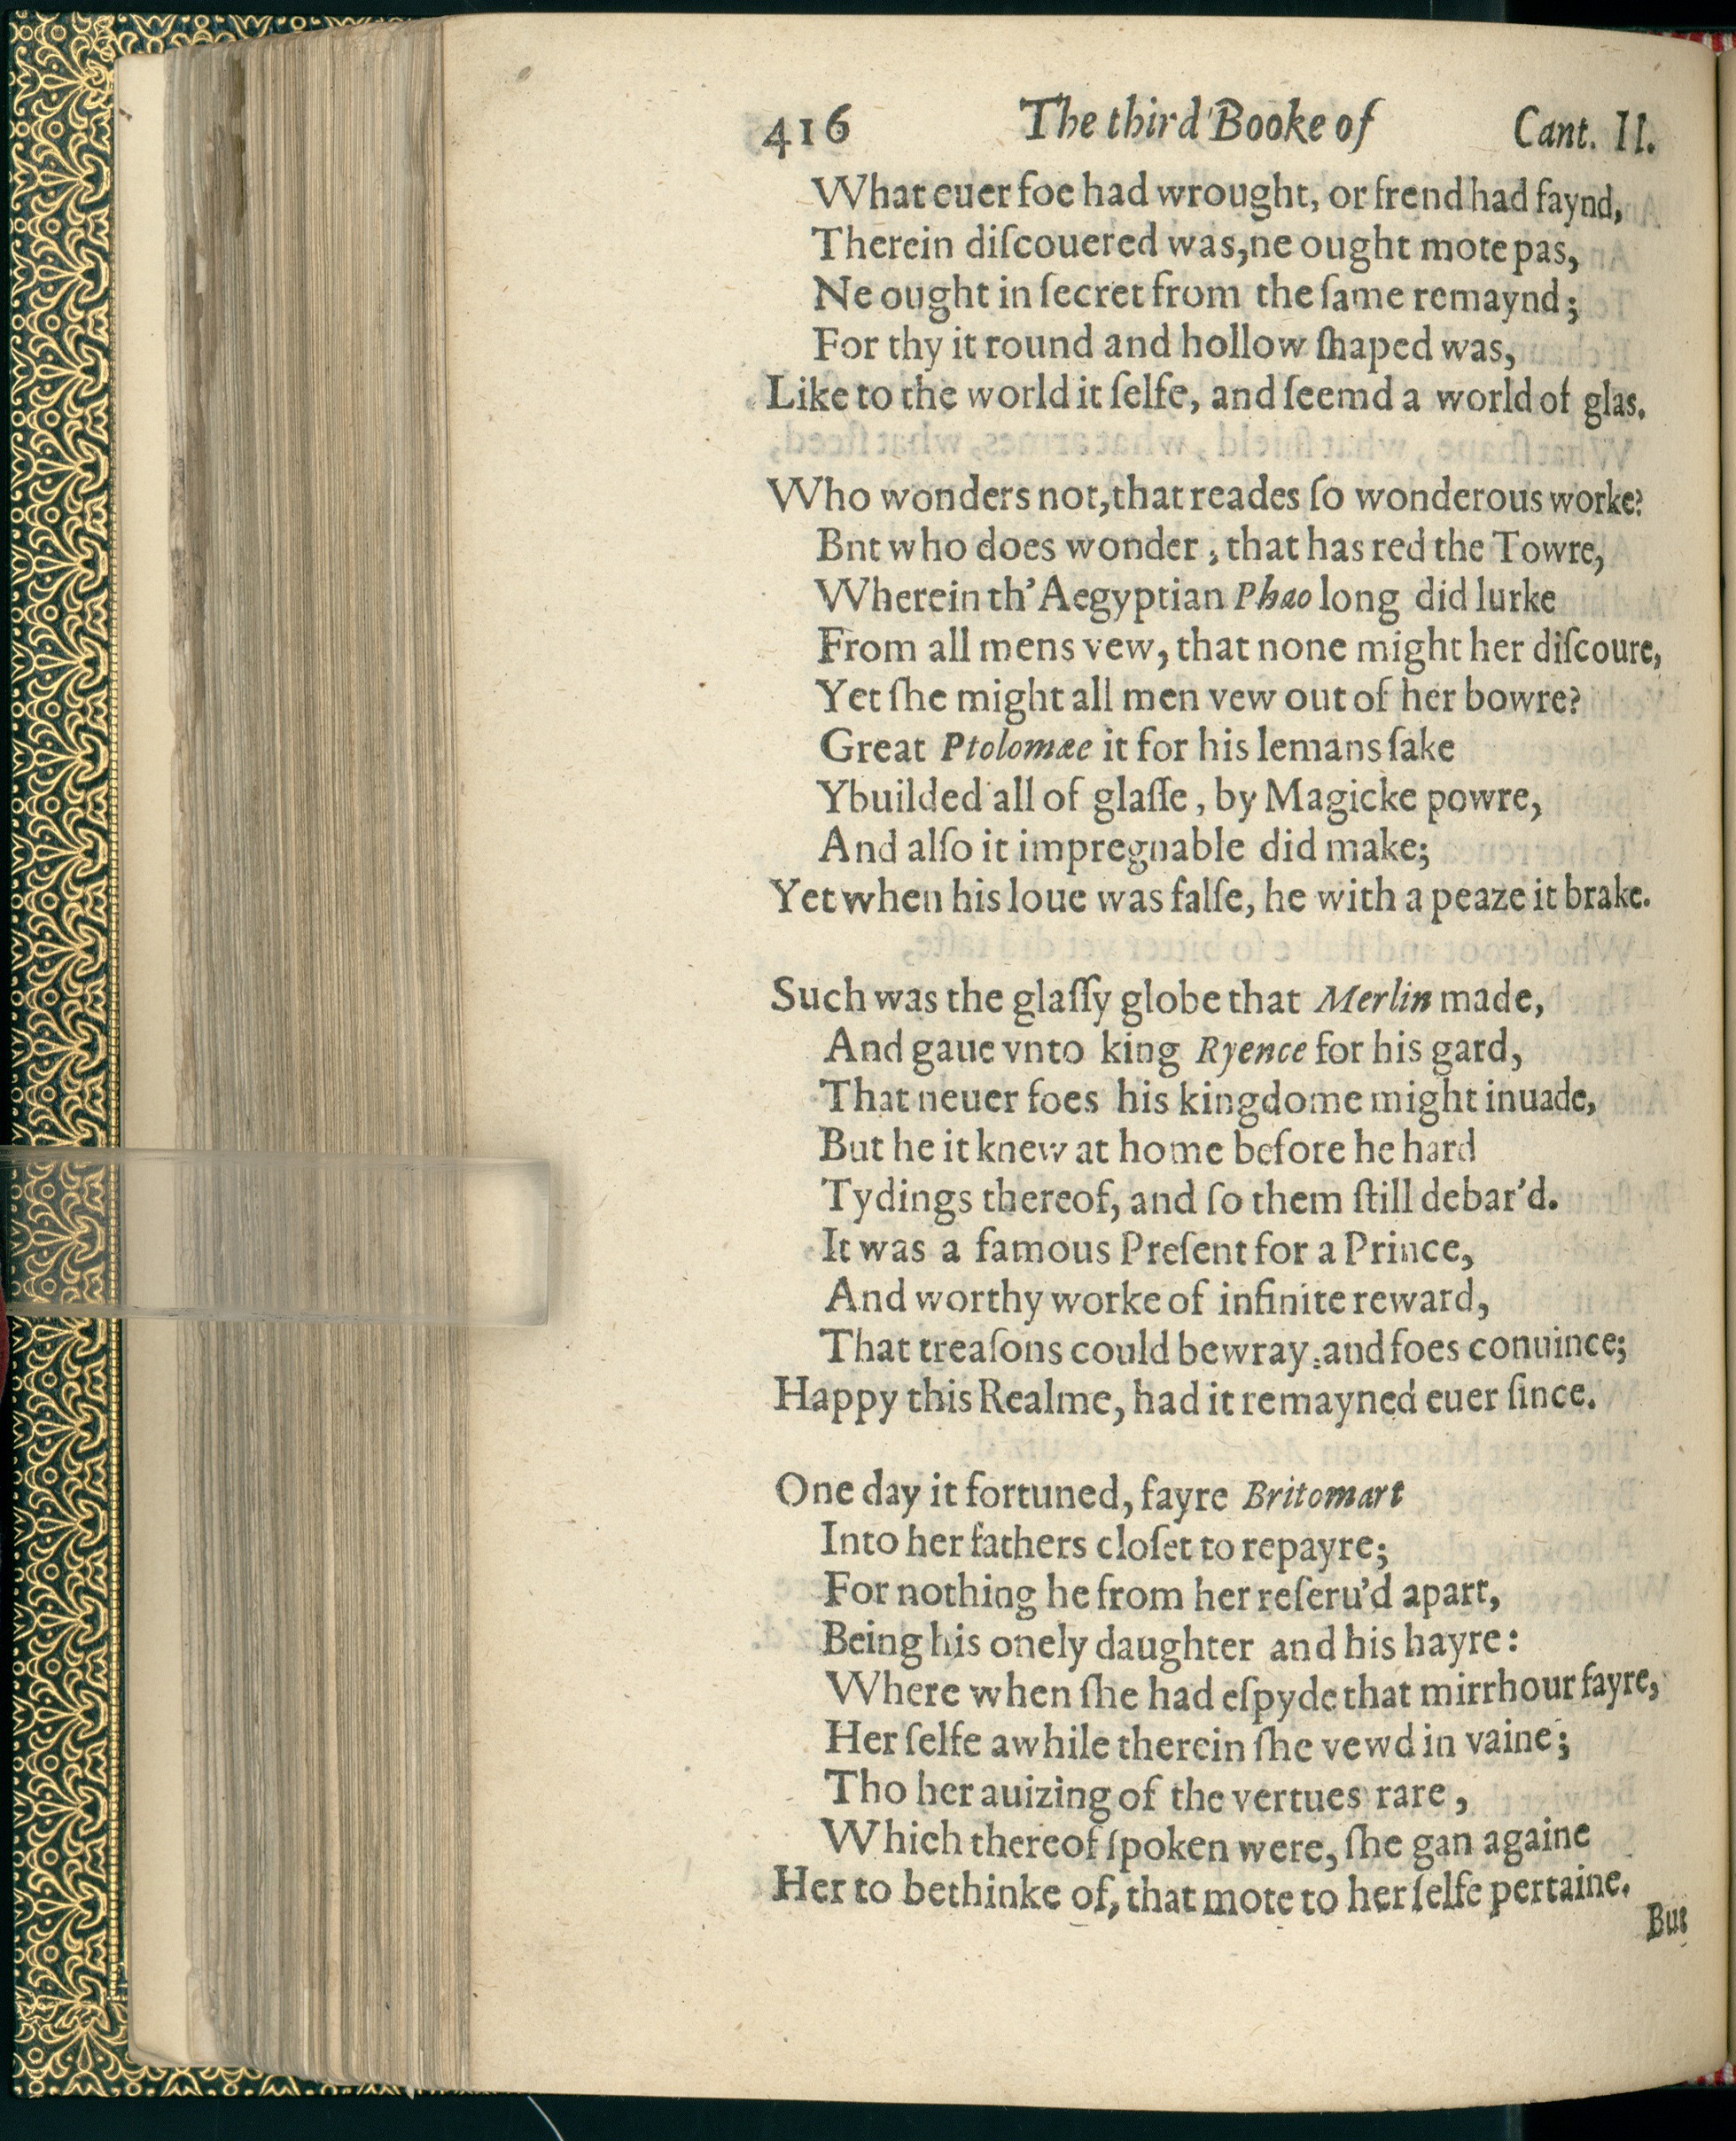 416 The third Booke of Cant. II.
What euer foe had wrought, or frend had faynd,
Therein diſcouered was, ne ought mote pas,
Ne ought in ſecret from the ſame remaynd;
For thy it round and hollow ſhaped was,
Like to the world it ſelfe, and ſeemd a world of glas.
Who wonders not, that reades ſo wonderous worke?
Bnt who does wonder, that has red the Towre,
Wherein th'Aegyptian Phao long did lurke
From all mens vew, that none might her diſcoure,
Yet ſhe might all men vew out of her bowre?
Great Ptolomæe it for his lemans ſake
Ybuilded all of glaſſe, by Magicke powre,
And alſo it impregnable did make;
Yet when his loue was falſe, he with a peaze it brake.
Such was the glaſſy globe that Merlin made,
And gaue vnto king Ryence for his gard,
That neuer foes his kingdome might inuade,
But he it knew at home before he hard
Tydings thereof, and ſo them ſtill debar'd.
It was a famous Preſent for a Prince,
And worthy worke of infinite reward,
That treaſons could bewray, and foes conuince;
Happy this Realme, had it remayned euer ſince.
One day it fortuned, fayre Britomart
Into her fathers cloſet to repayre;
For nothing he from her reſeru'd apart,
Being his onely daughter and his hayre:
Where when ſhe had eſpyde that mirrhour fayre,
Her ſelfe awhile therein ſhe vewd in vaine;
Tho her auizing of the vertues rare,
Which thereof ſpoken were, ſhe gan againe
Her to bethinke of, that mote to her ſelfe pertaine.
But